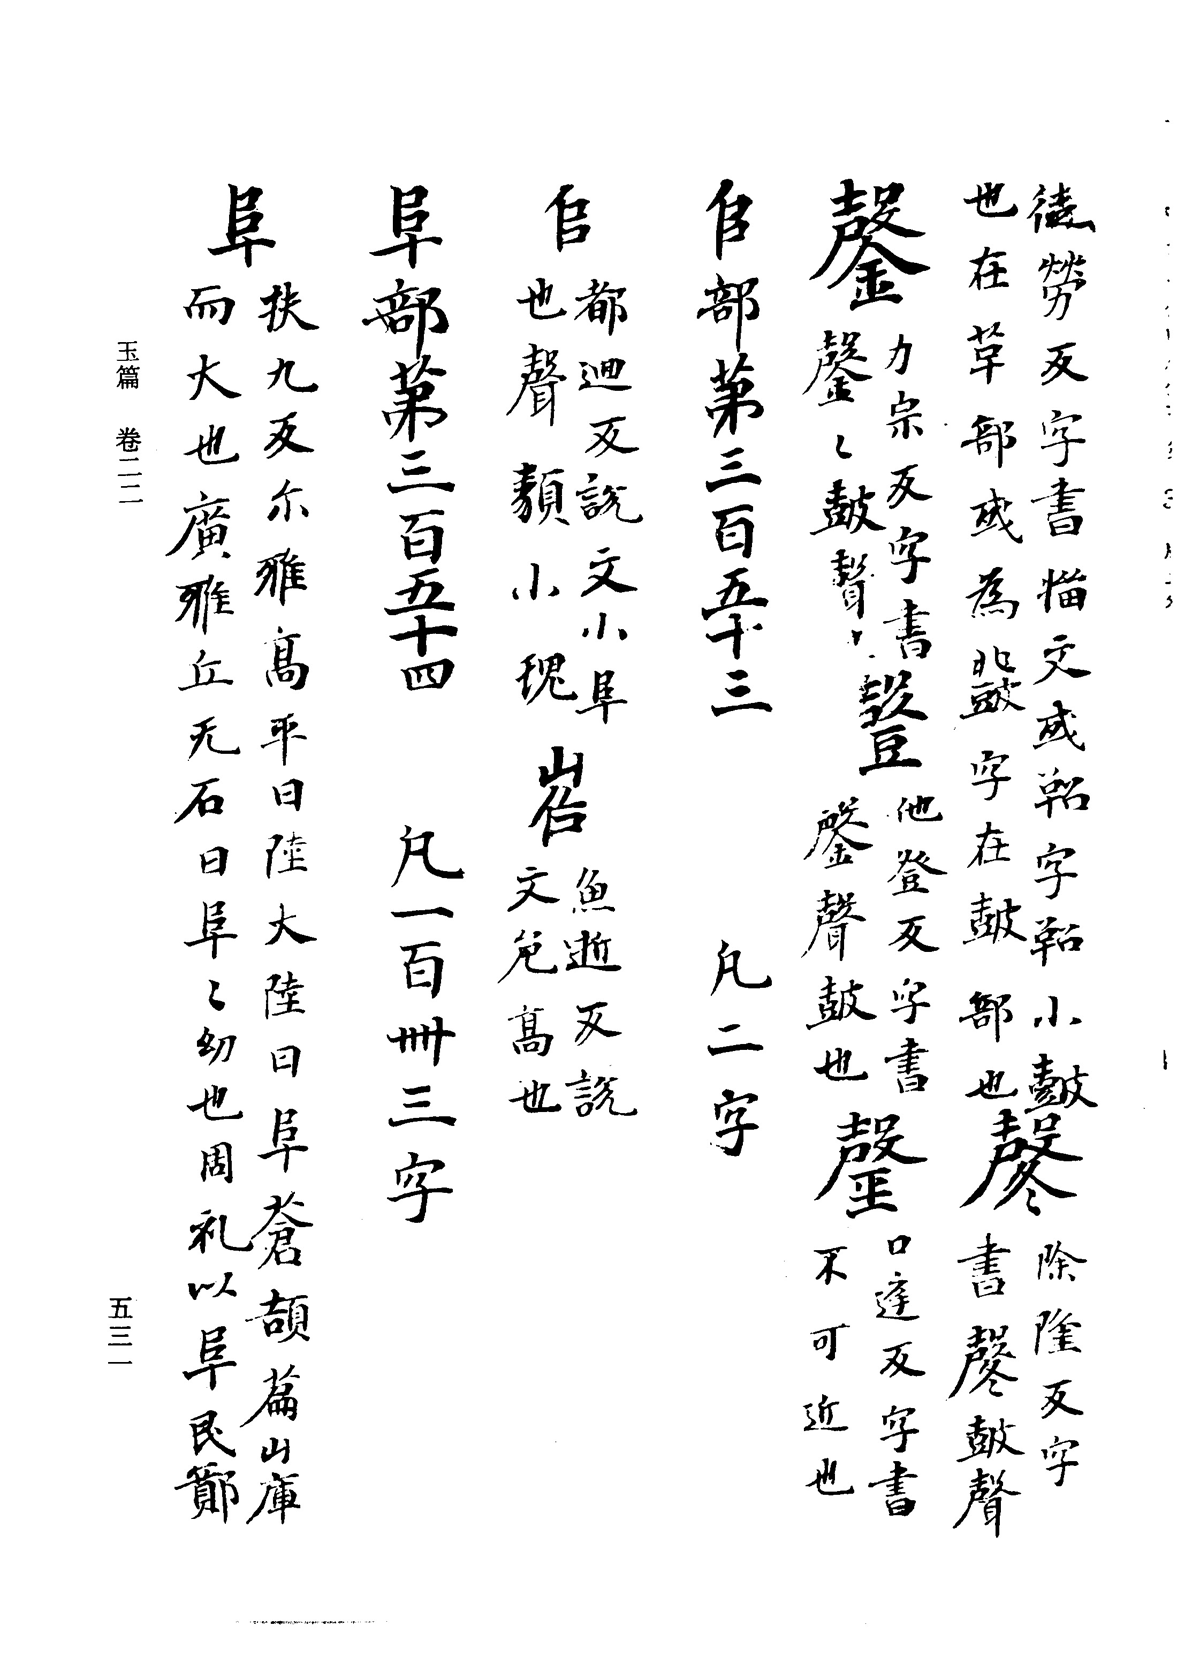 徒勞反字書籀文或鞀字鞀小鼓
也在革部或為鼗字在鼓部也
𪔝
除隆反字
書𪔝鼓聲
鏧
力宗反字書
鏧〻鼓聲
鼟
他登反字書
鏧聲鼓也
口達反字書
不可近也
𠂤部第三百五十三 凡二字
𠂤
都迴反說文小阜
也聲類小塊
魚逝反說
文危高也
阜部第三百五十四 凡一百卌三字
阜
扶九反尒雅高平曰陸大陸曰阜蒼頡篇山庫
而大也廣雅丘无石曰阜〻幼也周礼以阜民鄭
玉篇 卷二二
五三一